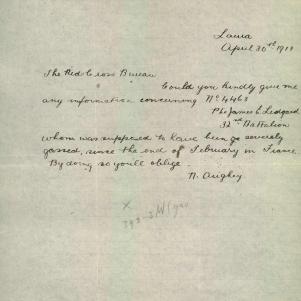 Laura
April 30th 1918
The Red Cross Bureau
Could you kindly give me
any information concerning No 4463
Pte James L Ledgard
32nd Battalion
whom was supposed to have been so severely
gassed, since the end of February in France.
By doing so you'll oblige.
N. Aughey
X